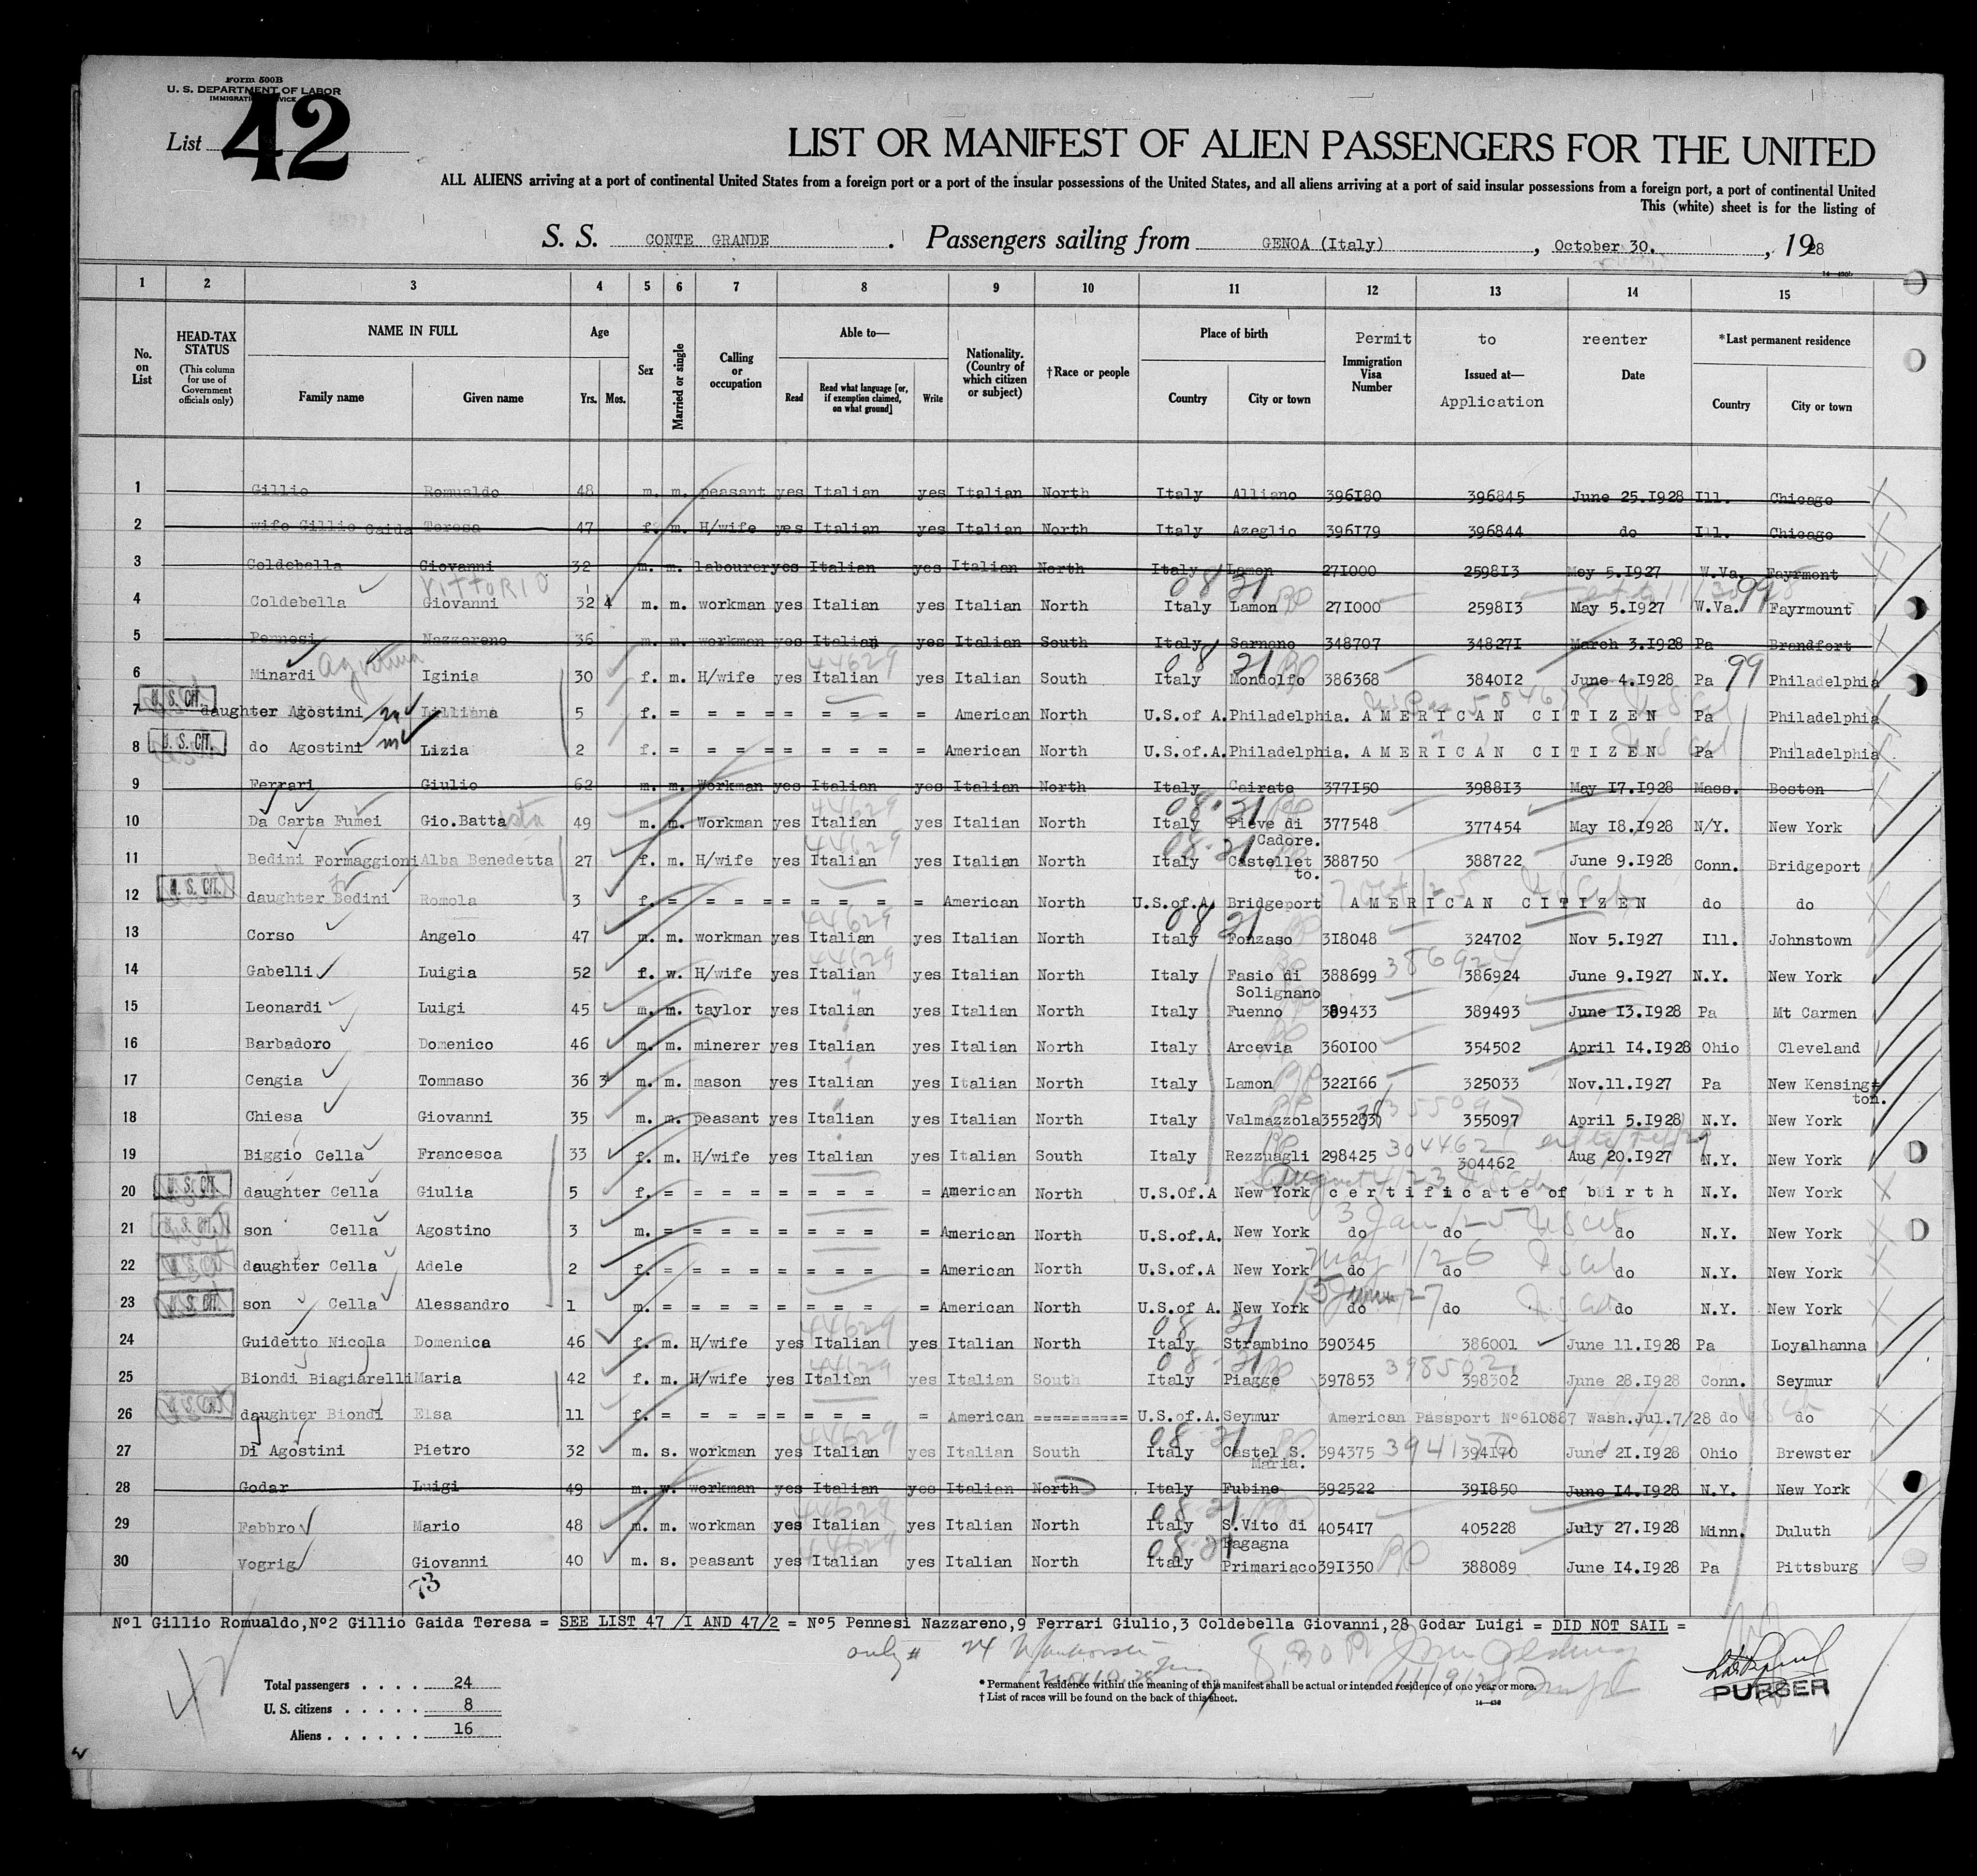 Form 500B
U. S. DEPARTMENT OF LABOR
IMMIGRATION SERVICE
List 42
LIST OR MANIFEST OF ALIEN PASSENGERS FOR THE UNITED
ALL ALIENS arriving at a port of continental United States from a foreign port or a port of the insular possessions of the United States, and all aliens arriving at a port of said insular possessions from a foreign port, a port of continental United
This (white) sheet is for the listing of
S. S. CONTE GRANDE . Passengers sailing from GENOA (Italy) , October 30. , 1928
14-430b
1 2 3 4 5 6 7 8 9 10 11 12 13 14 15
No. on List
HEAD-TAX STATUS (This column for use of Government officials only)
NAME IN FULL Family name Given name
Age Yrs. Mos.
Sex
Married or single
Calling or occupation
Able to— Read Read what language [or, if exemption claimed, on what ground] Write
Nationality. (Country of which citizen or subject)
†Race or people
Place of birth Country City or town
Permit to reenter
Immigration Visa Number
Issued at— Application
Date
*Last permanent residence Country City or town
1 Gillio Romualdo 48 m. m. peasant yes Italian yes Italian North Italy Alliano 396180 396845 June 25.1928 Ill. Chicago
2 wife Gillio Gaida Teresa 47 f. m. H/wife yes Italian yes Italian North Italy Azeglio 396179 396844 do Ill. Chicago
3 Coldebella Giovanni 32 m. m. labourer yes Italian yes Italian North Italy Lamon 271000 259813 May 5.1927 W.Va. Fayrmont
VITTORIO 08 21 99
4 Coldebella Giovanni 32 4 m. m. workman yes Italian yes Italian North Italy Lamon 271000 259813 May 5.1927 W.Va. Fayrmount
5 Pennesi Nazzareno 36 m. m. workman yes Italian yes Italian South Italy Sarnano 348707 348271 March 3.1928 Pa Brandfort
Agostini 44629 08 21 99
6 Minardi Iginia 30 f. m. H/wife yes Italian yes Italian South Italy Mondolfo 386368 384012 June 4.1928 Pa Philadelphia
U. S. CIT.
7 daughter Agostini Lilliana 5 f. = = = = = = = = = American North U.S.of A. Philadelphia. AMERICAN CITIZEN Pa Philadelphia
U. S. CIT.
8 do Agostini Lizia 2 f. = = = = = = = = = American North U.S.of.A. Philadelphia. AMERICAN CITIZEN Pa Philadelphia
9 Ferrari Giulio 62 m. m. Workman yes Italian yes Italian North Italy Cairate 377150 398813 May 17.1928 Mass. Boston
44629 08 21
10 Da Carta Fumei Gio.Batta sta 49 m. m. Workman yes Italian yes Italian North Italy Pieve di Cadore. 377548 377454 May 18.1928 N/Y. New York
44629 08-21
11 Bedini Formaggioni Alba Benedetta 27 f. m. H/wife yes Italian yes Italian North Italy Castelletto. 388750 388722 June 9.1928 Conn. Bridgeport
U. S. CIT.
12 daughter Bedini Romola 3 f. = = = = = = = = = American North U.S.of.A. Bridgeport AMERICAN CITIZEN do do
44629 08 21
13 Corso Angelo 47 m. m. workman yes Italian yes Italian North Italy Fonzaso 318048 324702 Nov 5.1927 Ill. Johnstown
44629 386924
14 Gabelli Luigia 52 f. w. H/wife yes Italian yes Italian North Italy Fasio di Solignano 388699 386924 June 9.1927 N.Y. New York
15 Leonardi Luigi 45 m. m. taylor yes Italian yes Italian North Italy Fuenno 389433 389493 June 13.1928 Pa Mt Carmen
16 Barbadoro Domenico 46 m. m. minerer yes Italian yes Italian North Italy Arcevia 360100 354502 April 14.1928 Ohio Cleveland
17 Cengia Tommaso 36 3 m. m. mason yes Italian yes Italian North Italy Lamon 322166 325033 Nov.11.1927 Pa New Kensington.
18 Chiesa Giovanni 35 m. m. peasant yes Italian yes Italian North Italy Valmazzola 355283 355097 April 5.1928 N.Y. New York
304462
19 Biggio Cella Francesca 33 f. m. H/wife yes Italian yes Italian South Italy Rezzuagli 298425 304462 Aug 20.1927 N.Y. New York
U. S. CIT. August 4/23 US Cit
20 daughter Cella Giulia 5 f. = = = = = = = = = American North U.S.Of.A New York certificate of birth N.Y. New York
U. S. CIT. 3 Jan/25 US Cit
21 son Cella Agostino 3 m. = = = = = = = = = American North U.S.of.A. New York do do do N.Y. New York
U. S. CIT. May 1/26 US Cit
22 daughter Cella Adele 2 f. = = = = = = = = = American North U.S.of.A New York do do do N.Y. New York
U. S. CIT. US Cit
23 son Cella Alessandro 1 m. = = = = = = = = = American North U.S.of A. New York do do do N.Y. New York
44629 08 21
24 Guidetto Nicola Domenica 46 f. m. H/wife yes Italian yes Italian North Italy Strambino 390345 386001 June 11.1928 Pa Loyalhanna
44629 08-21 398502
25 Biondi Biagiarelli Maria 42 f. m. H/wife yes Italian yes Italian South Italy Piagge 397853 398302 June 28.1928 Conn. Seymur
U. S. CIT.
26 daughter Biondi Elsa 11 f. = = = = = = = = = American ========== U.S.of.A. Seymur American Passport Nº610887 Wash.Jul.7/28 do do
44629 08-21 394170
27 Di Agostini Pietro 32 m. s. workman yes Italian yes Italian South Italy Castel S. Maria. 394375 394170 June 21.1928 Ohio Brewster
28 Godar Luigi 49 m. w. workman yes Italian yes Italian North Italy Fubine 392522 391850 June 14.1928 N.Y. New York
44629 08-21
29 Fabbro Mario 48 m. m. workman yes Italian yes Italian North Italy S.Vito di Fagagna 405417 405228 July 27.1928 Minn. Duluth
44629 08-21
30 Vogrig Giovanni 40 m. s. peasant yes Italian yes Italian North Italy Primariaco 391350 388089 June 14.1928 Pa Pittsburg
73
Nº1 Gillio Romualdo,Nº2 Gillio Gaida Teresa = SEE LIST 47 /I AND 47/2 = Nº5 Pennesi Nazzareno,9 Ferrari Giulio,3 Coldebella Giovanni,28 Godar Luigi = DID NOT SAIL =
only # 24
42
Total passengers . . . . 24
U. S. citizens . . . . . 8
Aliens . . . . . . 16
* Permanent residence within the meaning of this manifest shall be actual or intended residence of one year or more.
† List of races will be found on the back of this sheet.
14-430
PURSER